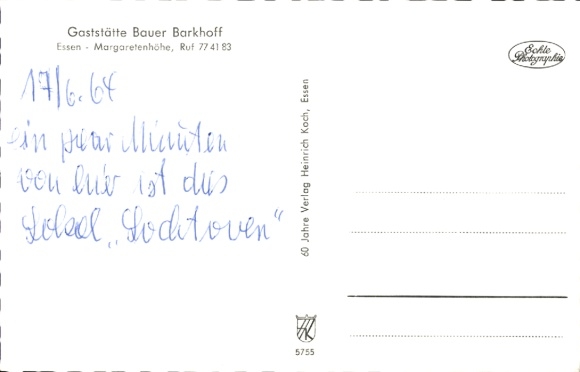 Gaststätte Bauer Barkhoff
Essen - Margaretenhöhe, Ruf 77 41 83
Echte
Photographie
17/6.64
ein paar Minuten
von hier ist das
Lokal „Lochtoven“
60 Jahre Verlag Heinrich Koch, Essen
HK
5755